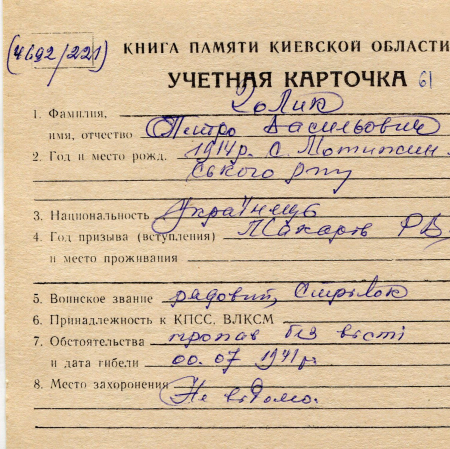 (4692/221)
КНИГА ПАМЯТИ КИЕВСКОЙ ОБЛАСТИ
УЧЕТНАЯ КАРТОЧКА 61
1. Фамилия,
имя, отчество Петро Васильович
2. Год и место рожд. 1914р. с. Мотижин
ського р-ну
3. Национальность Українець
4. Год призыва (вступления) Макарів РВ
и место проживания
5. Воинское звание рядовий, Стрілок
6. Принадлежность к КПСС. ВЛКСМ
7. Обстоятельства пропав без вісті
и дата гибели 00.07 1941р.
8. Место захоронения
Не відомо.